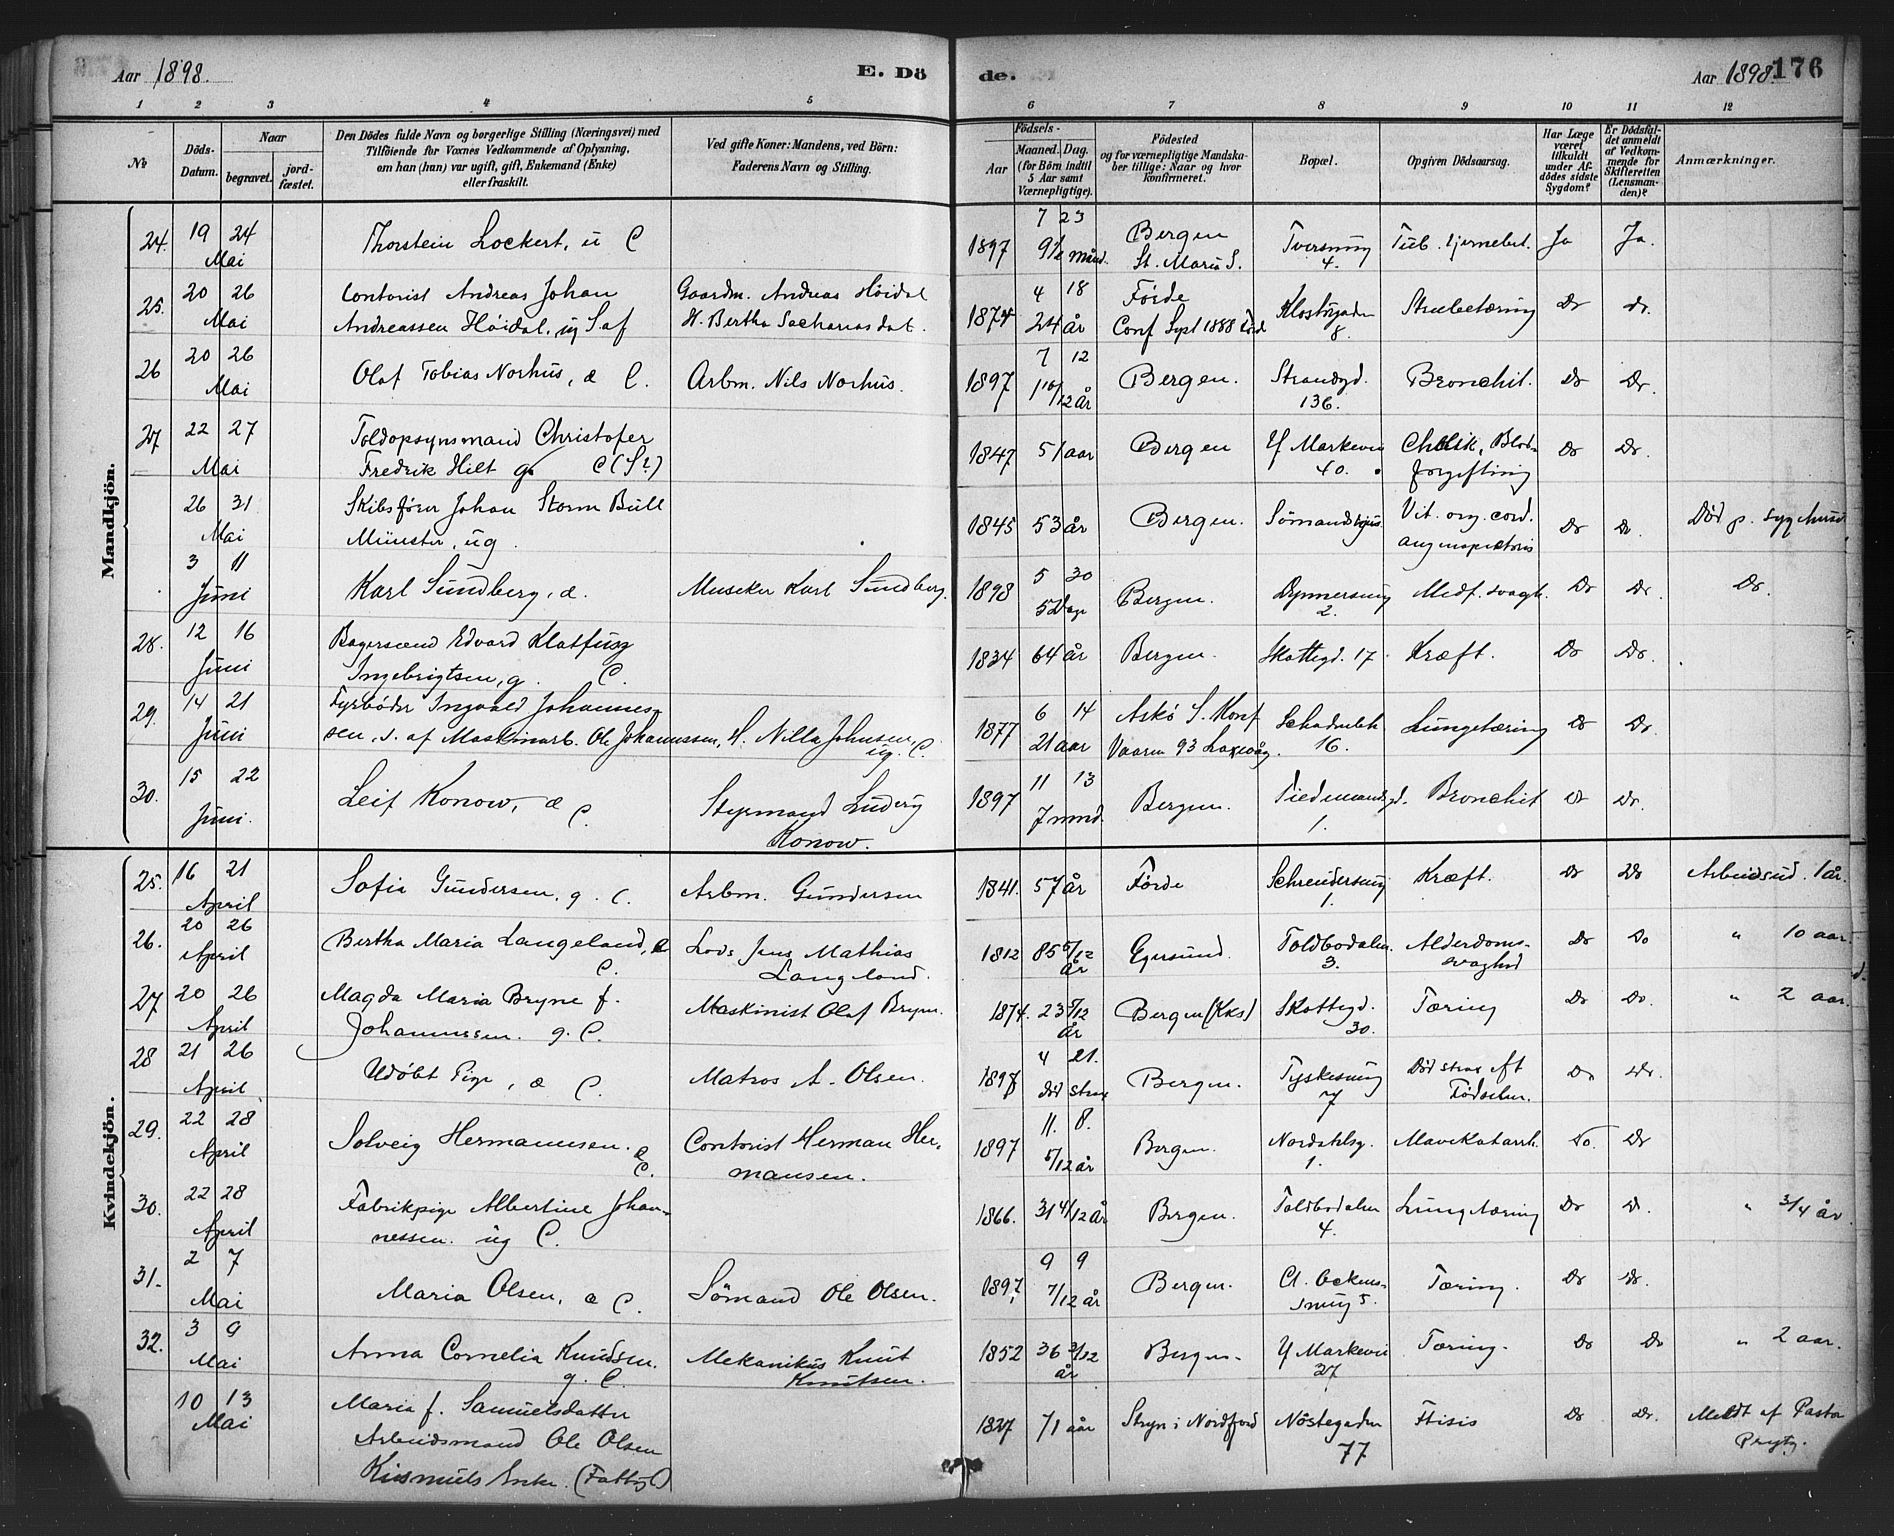 Aar 1898. E. Dö de. Aar 1898. 176
1 2 3 4 5 6 7 8 9 10 11 12
No
Döds-Datum.
Naar
begravet.
jord-fæstet.
Den Dödes fulde Navn og borgerlige Stilling (Næringsvei) med
Tilföiende for Voxnes Vedkommende af Oplysning,
om han (hun) var ugift, gift, Enkemand (Enke)
eller fraskilt.
Ved gifte Koner: Mandens, ved Börn:
Faderens Navn og Stilling.
Födsels-
Aar
Maaned. Dag.
(for Börn indtil
5 Aar samt
Værnepligtige).
Födested
og for værnepligtige Mandska-
ber tillige: Naar og hvor
konfirmeret.
Bopæl.
Opgiven Dödsaarsag.
Har Læge
været
tilkaldt
under Af-
dödes sidste
Sygdom?
Er Dödsfal-
det anmeldt
af Vedkom-
mende for
Skifteretten
(Lensman-
den)?
Anmærkninger.
Mandkjön.
24. 19 24 Mai Thorstein Lockert, u C 1897 7 23 9½ månd. Bergen St. Maria S. Tversmug 4. Tub. hjernebet. Ja Ja.
25. 20 26 Mai Contorist Andreas Johan
Andreassen Höidal, ug S af Gaardm. Andreas Höidal
H. Bertha Sachariasdat. 1874 4 18 24 år Förde
Conf Sept 1888 Klostergaden 8. Strubetæring Do Do.
26 20 26 Mai Olaf Tobias Norhus, æ C. Arbm. Nils Norhus. 1897 7 12 10/12 år Bergen. Strandgd. 136. Bronchit. Do Do.
27 22 27 Mai Toldopsynsmand Christofer
Fredrik Hilt g. C (St) 1847 51 aar Bergen Y Markevei 40. Blod-
forgiftning Do Do.
26 31 Mai Skibsförer Johan Storm Bull
Münster, ug. 1845 53 år Bergen. Sömandshjus. Vit. org. cord.
Do Do. Död p. sygehuset
3 11 Juni Karl Sundberg, æ. Musiker Karl Sundberg. 1898 5 30 5 Dage Bergen. Dynnersmug 2. Medf. svagh. Do Do. Do.
28. 12 16 Juni Bagersvend Edvard Klatfusz
Ingebrigtsen, g. C. 1834 64 år Bergen. Skottegd. 17 Kræft. Do Do.
29. 14 21 Juni Fyrböder Ingvald Johannes-
sen, s. af Maskinarb. Ole Johannessen, H. Nilla Johnsen, ug. C. 1877 6 14 21 aar Askö S. Konf
Vaaren 93 Laxevåg. 16. Lungetæring Do Do.
30. 15 22 Juni. Leif Konow, æ C. Styrmand Ludvig
Konow. 1897 11 13 7 mnd. Bergen. Tiedemandsgd. 1. Bronchit Do Do.
Kvindekjön.
25. 16 21 April Sofia Gundersen, g. C. Arbm. Gundersen 1841. 57 år Förde Schreudersmug 1. Kræft. Do Do Arbeidsud. 1 år.
26. 20 26 April Bertha Maria Langeland, e C. Lods Jens Mathias
Langeland. 1812 85 5/12 år Egersund. Toldbodalm. 3. Alderdoms-
svaghed Do Do " 10 aar.
27 20 26 April Magda Maria Bryne f.
Johannessen. g. C. Maskinist Olaf Bryne. 1874. 23 5/12 år Bergen (Kks) Skottegd. 30. Tæring Do Do. " 2 aar.
28 21 26 April Udöbt Pige, æ C. Matros A. Olsen. 1898 4 21. död strax Bergen. Tyskesmug 7 Död strax eft
Födselen. Do Do.
29. 22 28 April Solveig Hermannsen. æ C. Contorist Herman Her-
mansen. 1897 11. 8. 5/12 år Bergen. Nordahlsg. 1. Mavekatarrh. Do. Do
30. 22 28 April Fabrikpige Albertine Johan-
nessen. ug C. 1866. 31 4/12 år Bergen. Toldbodalm 4. Lungetæring Do D. " 3/4 år.
31. 2 7 Mai Maria Olsen, æ C. Sömand Ole Olsen. 1897 9 9 7/12 år Bergen. Cl. Ockens-
smug 5. Tæring. Do Do.
32. 3 9 Mai Anna Cornelia Knudsen.
g. C. Mekanikus Knut
Knutsen. 1852 36 3/12 år Bergen. Y Markevei 37 Tæring. Do Do " 2 aar.
10 13 Mai Maria f. Samuelsdatter
Arbeidsmand Ole Olsen
Kismuls Enke. 1827 71 aar Stryn i Nordfjord Nöstegaden 77 Ftisis Do Do. Meldt af Pastor